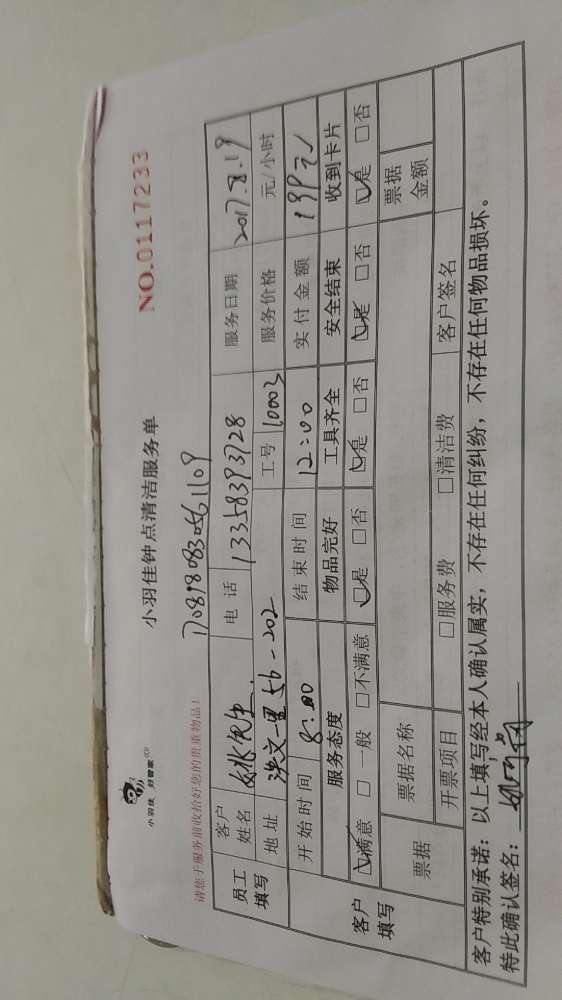 小羽佳 好管家
小羽佳钟点清洁服务单
NO.0117233
请您于服务前收拾好您的贵重物品!
员工填写 客户姓名 姚先生 电话 13358393728 服务日期 2017.8.19
地址 洪文一里56-202 工号 10003 服务价格 元/小时
开始时间 8:00 结束时间 12:00 实付金额
客户填写 服务态度 物品完好 工具齐全 安全结束 收到卡片
☑满意 □一般 □不满意 ☑是 □否 ☑是 □否 ☑是 □否 ☑是 □否
票据 票据名称 票据金额
开票项目 □服务费 □清洁费 客户签名
客户特别承诺:以上填写经本人确认属实,不存在任何纠纷,不存在任何物品损坏。
特此确认签名: